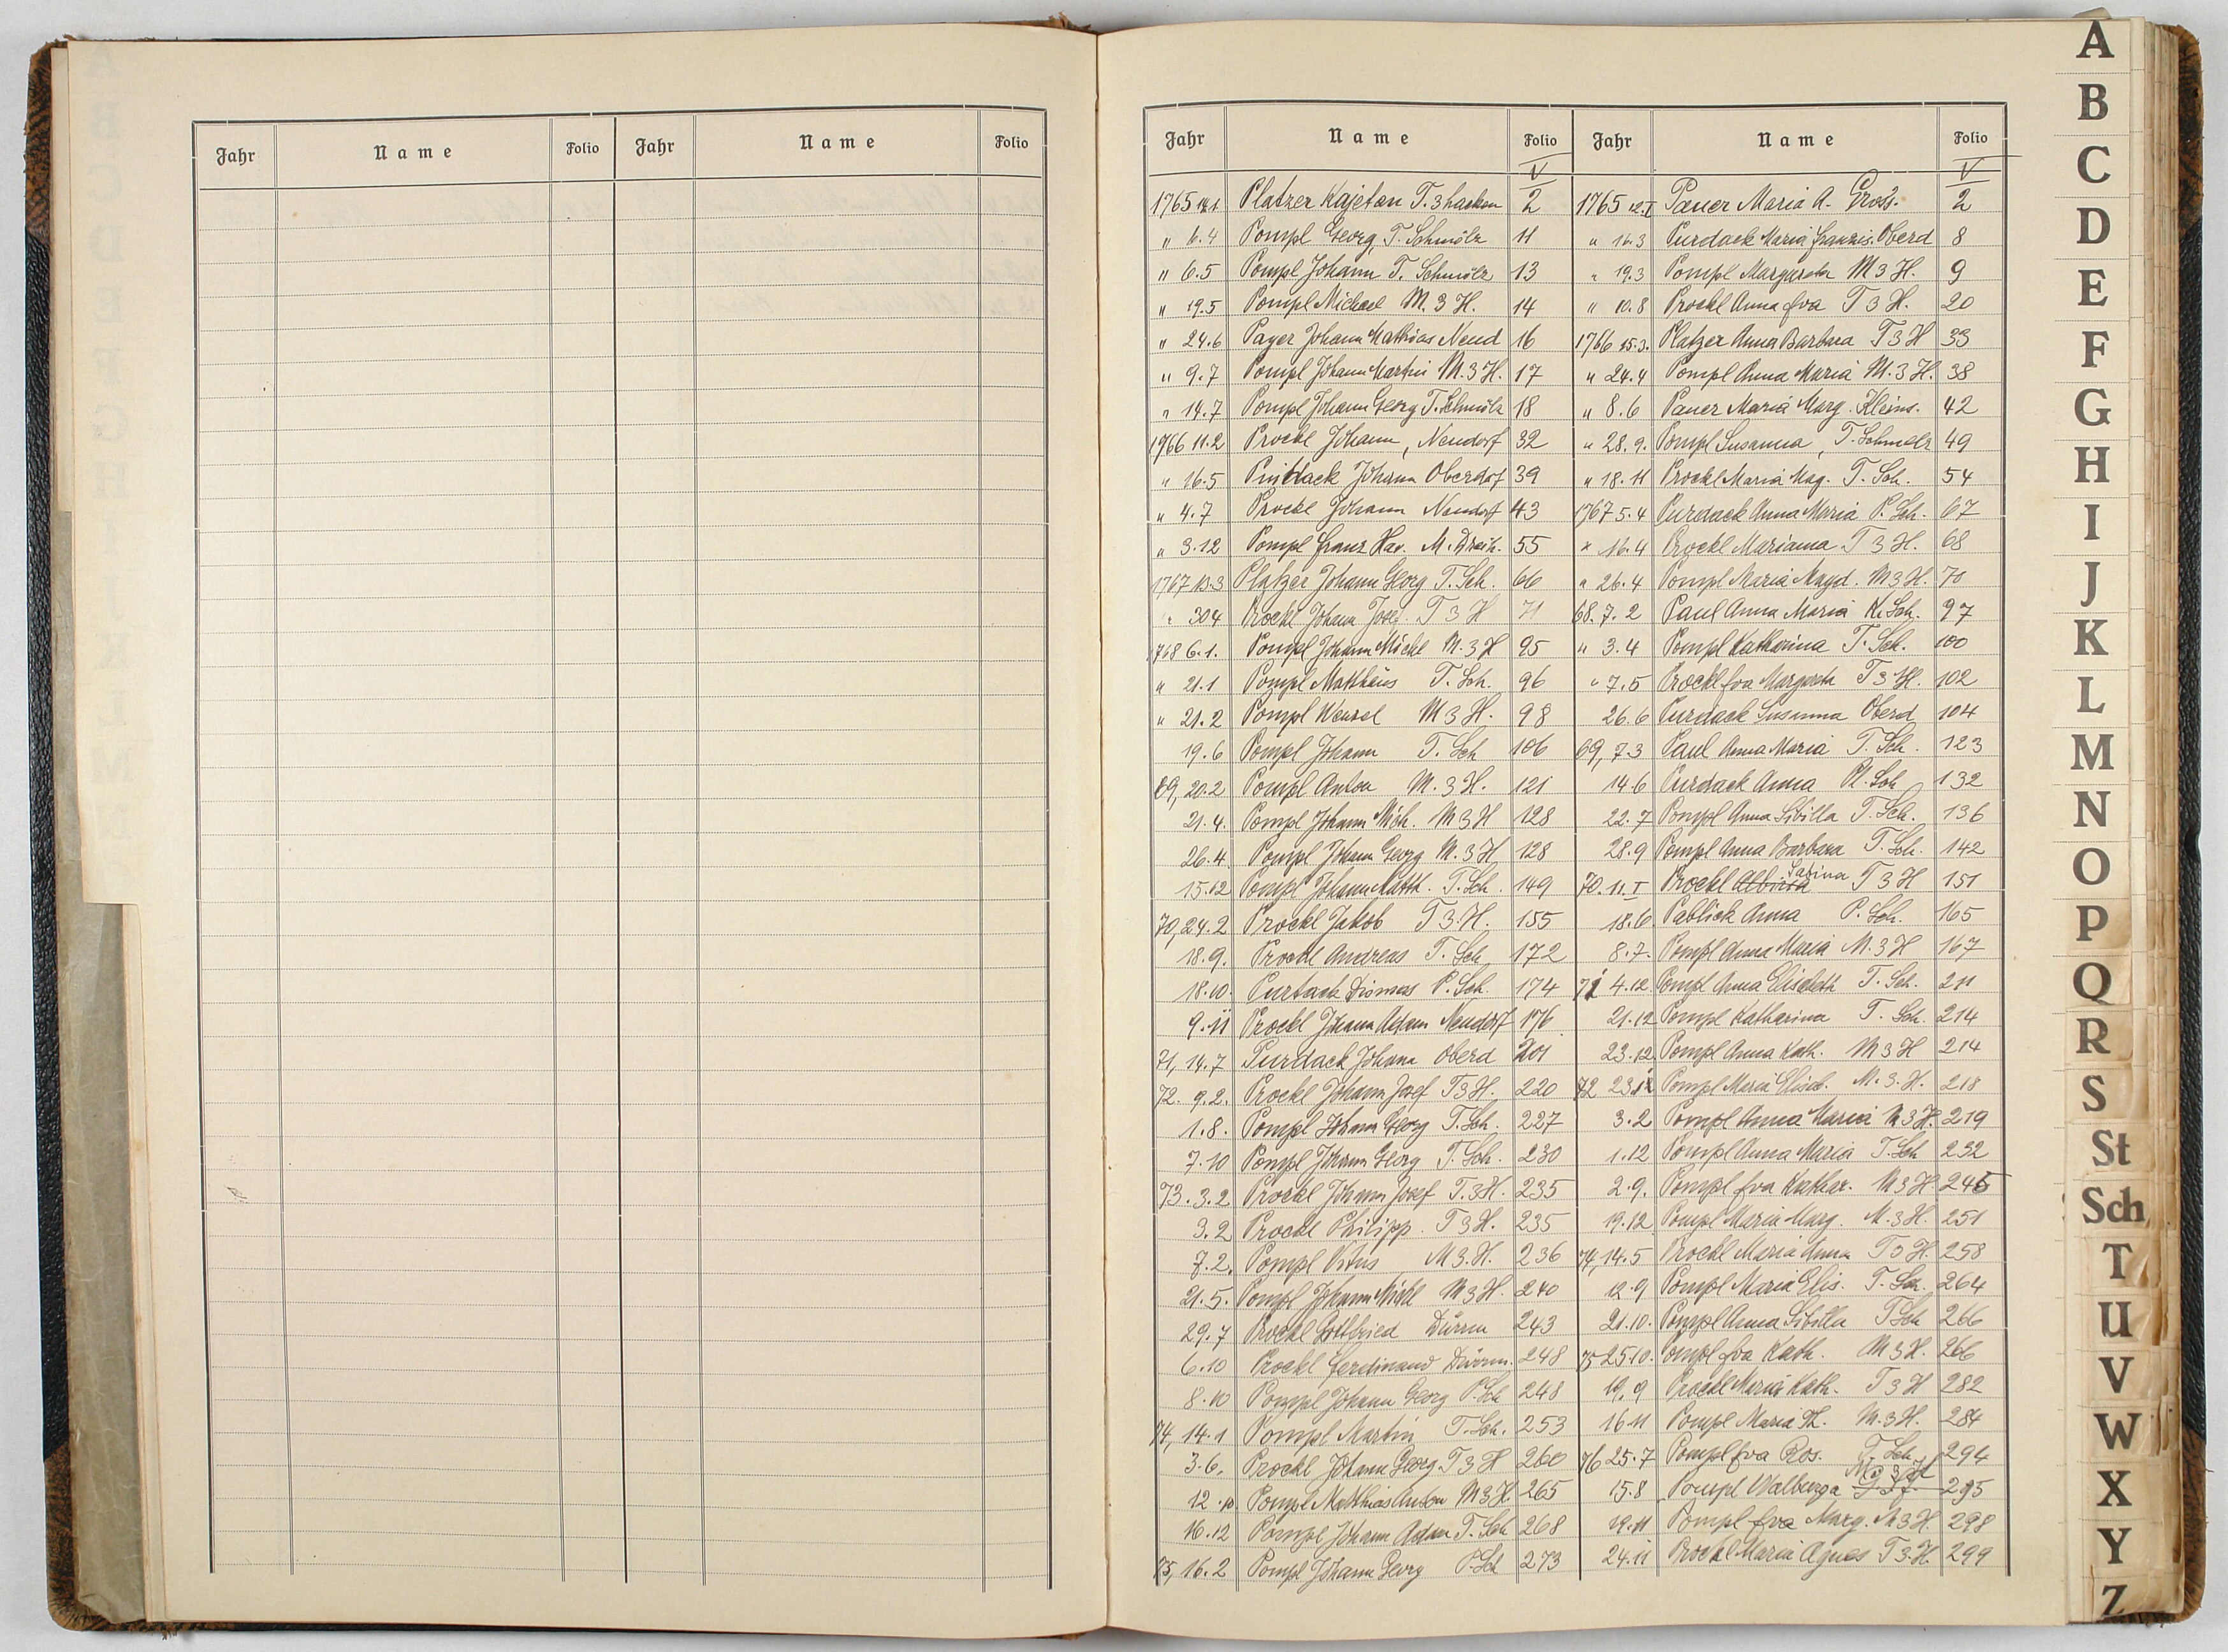 Jahr Name Folio Jahr Name Folio
Jahr Name Folio Jahr Name Folio
V V
1765 Platzer Kajetan T. 2
" 6.4 Pompl Georg, T. Schmölz 11
" 6.5 Pompl Johann T. Schmölz 13
" 19.5 Pompl Michael M. 3 H. 14
" 24.6 Payer Johann Mathias Neud 16
" 9.7 Pompl Johann Martin M. 3 H. 17
" 14.7 Pompl Johann Georg T. Schmölz 18
1766 11.2 Prockl Johann, Neudorf 32
" 16.5 Johann Oberdorf 39
" 4.7 Prockl Johann Neudorf 43
" 3.12 Pompl Franz Xav. M. Dreih. 55
1767 13.3 Platzer Johann Georg T. Sch. 66
" 30.4 Prockl Johann Josef T 3 H 71
1768 6.1. Pompl Johann Michl M. 3 H 95
" 21.1 Pompl Matthäus T. Sch. 96
" 21.2 Pompl Wenzel M 3 H. 98
19.6 Pompl Johann T. Sch 106
69, 20.2 Pompl Anton M. 3 H. 121
21.4. Pompl Johann Mich. M 3 H 128
26.4. Pompl Johann Georg M. 3 H 128
15.12 Pompl Johann Matth. T. Sch. 149
70, 24.2 Prockl Jakob T 3. H. 155
18.9. Prockl Andreas T. Sch 172
18.10. Purtack Dismas P. Sch. 174
9.11 Prockl Johann Adam Neudorf 176
71, 14.7 Purdack Johann Oberd 201
72. 9.2. Prockl Johann Josef T 3 H. 220
1.8. Pompl Johann Georg T. Sch. 227
7.10 Pompl Johann Georg T. Sch. 230
73. 3.2 Prockl Johann Josef T. 3 H. 235
3.2 Prockl Philipp. T 3 H. 235
7.2. Pompl Vitus M 3. H. 236
21.5. Pompl Johann Michl M 3 H. 240
29.7 Prockl Gottfried Dürrm 243
6.10 Prockl Ferdinand Dürrm. 248
8.10 Pompl Johann Georg P. Sch 248
74, 14.1 Pompl Martin T. Sch. 253
3.6. Prockl Johann Georg T 3 H 260
12.10. Pompl Matthias Anton M 3 H. 265
16.12 Pompl Johann Adam T. Sch 268
75, 16.2 Pompl Johann Georg P. Sch 273
1765 12.I Pauer Maria A. Gross. 2
" 16.3 Purdack Maria Franzis. Oberd 8
" 19.3 Pompl Margareta M 3 H. 9
" 10.8 Prockl Anna Eva T 3 H. 20
1766 15.3. Platzer Anna Barbara T 3 H 33
" 24.4 Pompl Anna Maria M. 3 H. 38
" 8.6 Pauer Maria Marg. Kleins. 42
" 28.9. Pompl Susanna, T. Schmelz 49
" 18.11 Prockl Maria Mag. T. Sch. 54
1767 5.4 Purdack Anna Maria P. Sch. 67
" 16.4 Prockl Mariana T 3 H. 68
" 26.4 Pompl Maria Magd. M 3 H. 70
68. 7.2 Paul Anna Maria Sch. 97
" 3.4 Pompl Katharina T. Sch. 100
" 7.5 Prockl Eva Margareta T 3 H. 102
26.6 Purdack Susanna Oberd 104
69, 7.3 Paul Anna Maria T. Sch. 123
14.6 Purdack Anna Sch 132
22.7 Pompl Anna Sibilla T. Sch. 136
28.9 Pompl Anna Barbara T. Sch. 142
70. 11.I Prockl Albina Sabina T 3 H 151
18.6. Pablick Anna P. Sch. 165
8.7. Pompl Anna Maria M. 3 H 167
71 4.12 Pompl Anna Elisabeth T. Sch. 211
21.12 Pompl Katharina T. Sch. 214
23.12. Pompl Anna Kath. M 3 H 214
72 23.1 Pompl Maria Elisab. M. 3. H. 218
3.2 Pompl Anna Maria M 3 H. 219
1.12 Pompl Anna Maria T. Sch 232
2.9. Pompl Eva Kathar. M 3 H. 245
19.12 Pompl Maria Marg. M. 3 H. 251
74, 14.5 Prockl Maria Anna T 3 H. 258
12.9 Pompl Maria Elis. T. Sch. 264
21.10. Pompl Anna Sibilla Sch 266
75 25.10. Pompl Eva Kath. M 3 H. 266
19.9 Prockl Maria Kath. T 3 H 282
16.11 Pompl Maria M. 3 H. 284
76 25.7 Pompl Eva Ros. T. Sch 294
15.8 Pompl Walburga M 3 H 295
19.11 Pompl Eva Marg. M 3 H. 298
24.11 Prockl Maria Agnes T 3. H. 299
A
B
C
D
E
F
G
H
I
J
K
L
M
N
O
P
Q
R
S
St
Sch
T
U
V
W
X
Y
Z